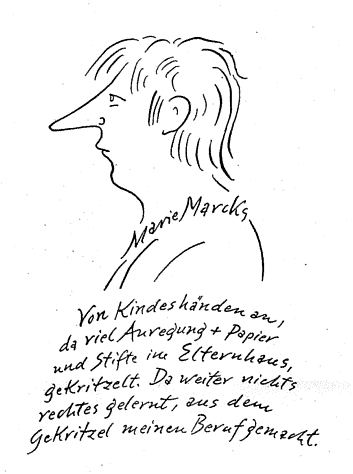 Marie Marcks
Von Kindeshänden an,
da viel Anregung + Papier
und Stifte im Elternhaus,
gekritzelt. Da weiter nichts
rechtes gelernt, aus dem
Gekritzel meinen Beruf gemacht.